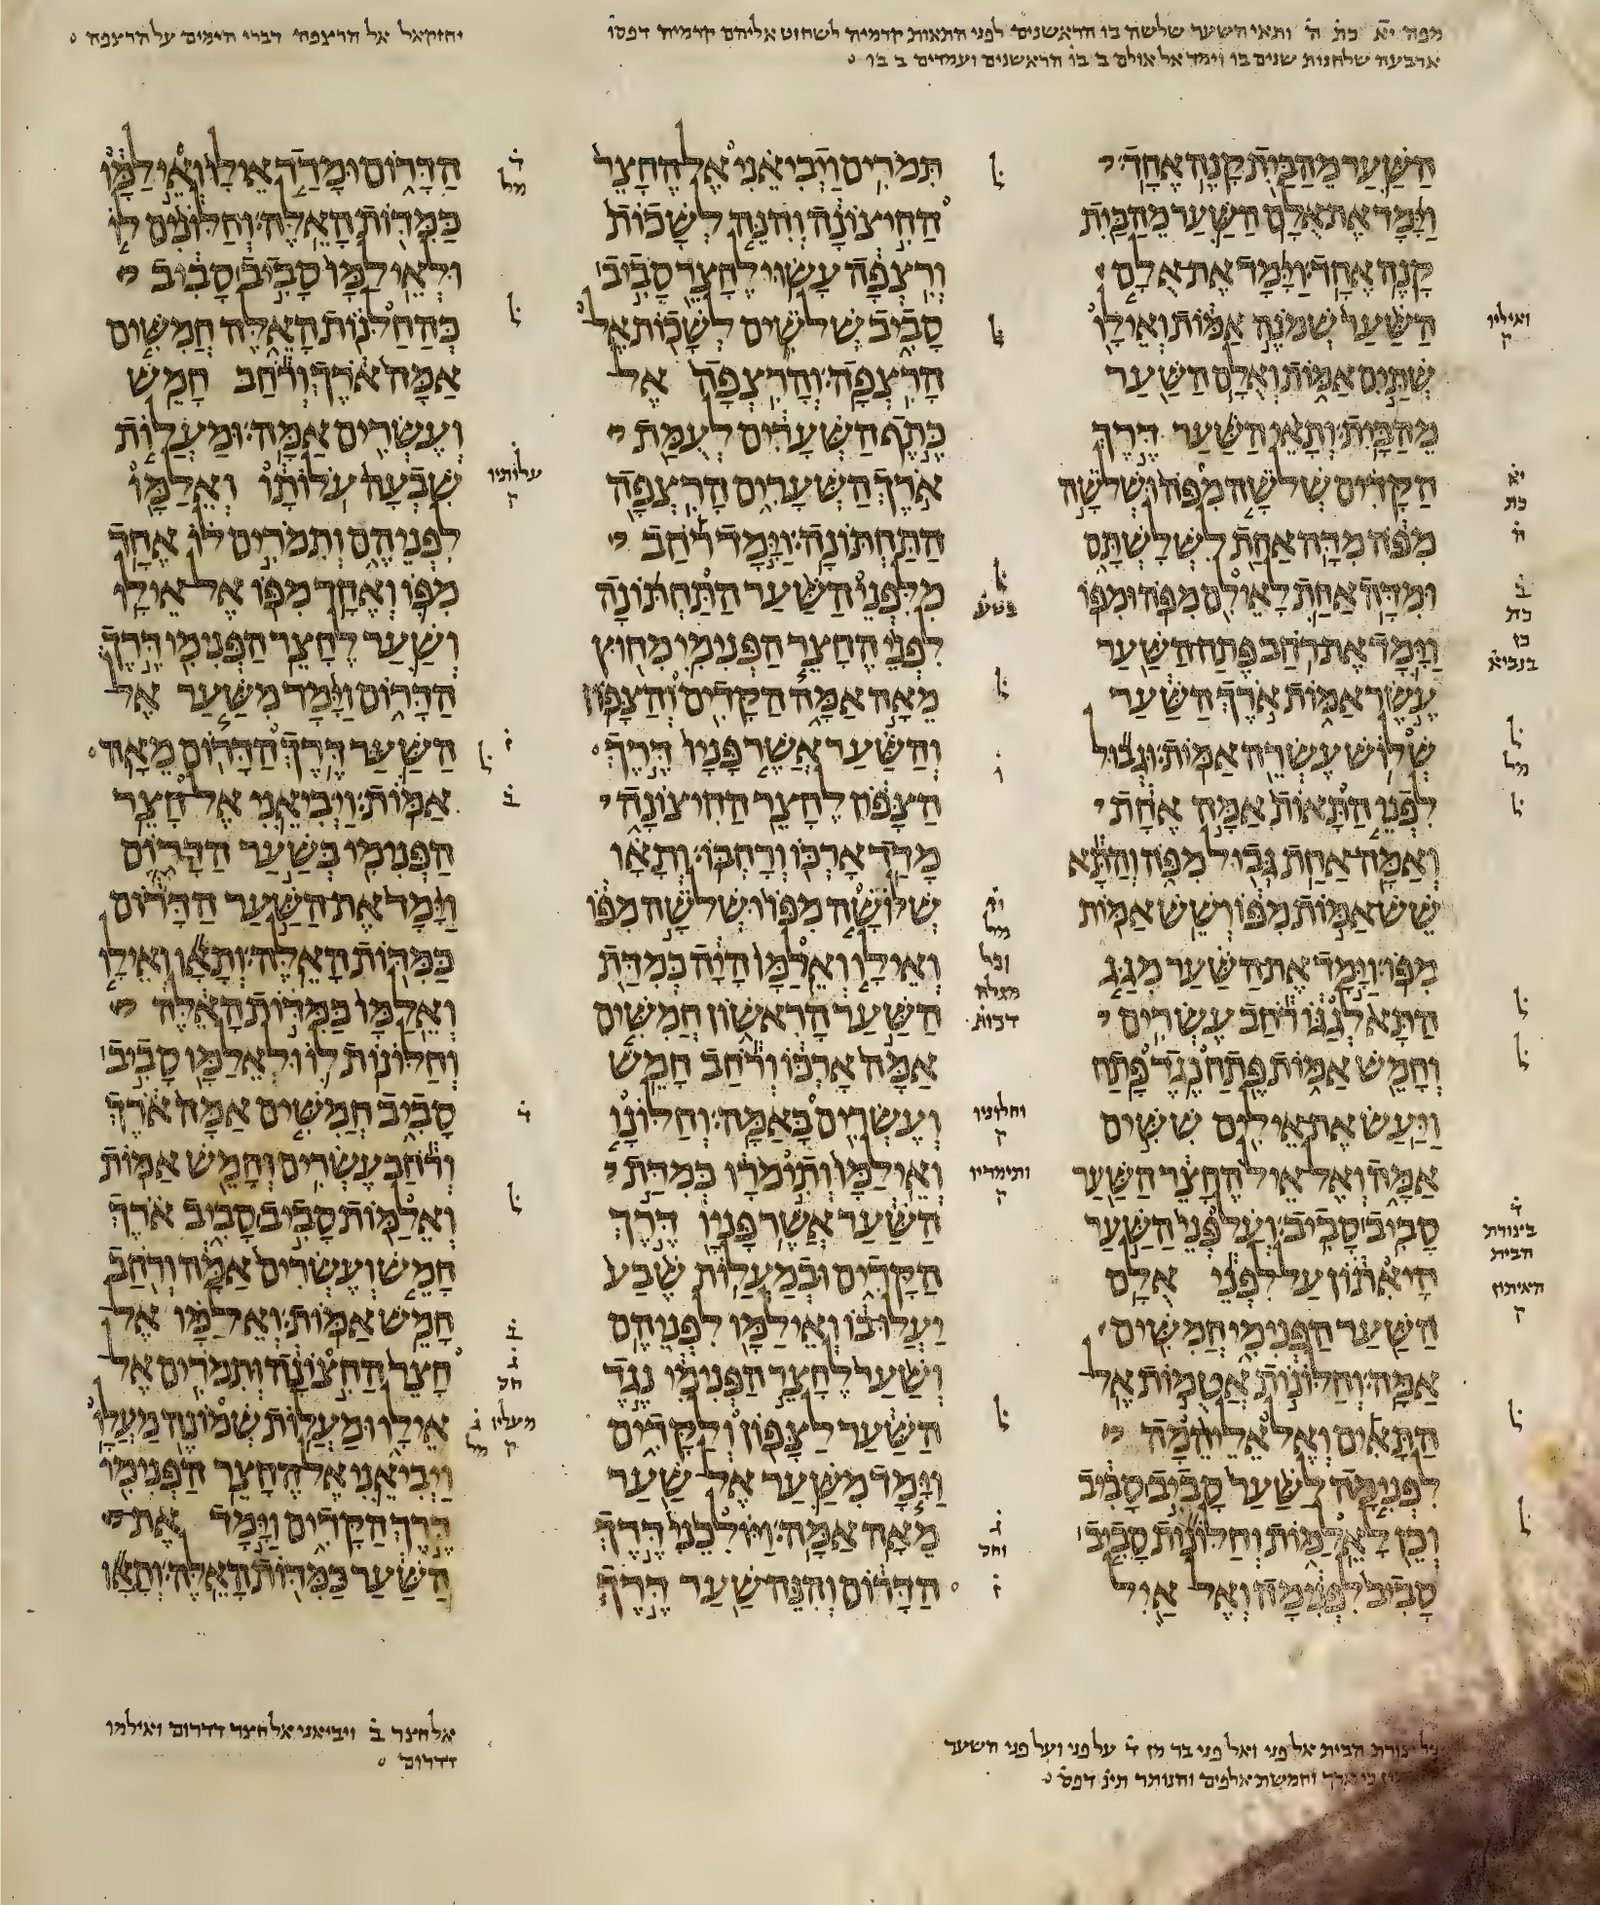 מפה יא כת ה ותאי השער שלשה בו הראשנים לפני התאות קדמיה לשחוט אליהם קדמיה דפסו
ארבעה שלחנות שנים בו וימד אל אולם ב בו הראשנים ועמדים ב בו
יחזקאל אל הרצפה דברי הימים על הרצפה
הַשַּׁעַר מֵהַבַּיִת קָנֶה אֶחָד׃
וַיָּמָד אֶת אֻלָם הַשַּׁעַר מֵהַבַּיִת
קָנֶה אֶחָד׃ וַיָּמָד אֶת אֻלָם
הַשַּׁעַר שְׁמֹנֶה אַמּוֹת וְאֵילָו
שְׁתַּיִם אַמּוֹת וְאֻלָם הַשַּׁעַר
מֵהַבָּיִת׃ וְתָאֵי הַשַּׁעַר דֶּרֶךְ
הַקָּדִים שְׁלֹשָׁה מִפֹּה וּשְׁלֹשָׁה
מִפֹּה מִדָּה אַחַת לִשְׁלָשְׁתָּם
וּמִדָּה אַחַת לָאֵילִם מִפֹּה וּמִפּוֹ
וַיָּמָד אֶת רֹחַב פֶּתַח הַשַּׁעַר
עֶשֶׂר אַמּוֹת אֹרֶךְ הַשַּׁעַר
שְׁלוֹשׁ עֶשְׂרֵה אַמּוֹת׃ וּגְבוּל
לִפְנֵי הַתָּאוֹת אַמָּה אֶחָת
וְאַמָּה אַחַת גְּבוּל מִפֹּה וְהַתָּא
שֵׁשׁ אַמּוֹת מִפּוֹ וְשֵׁשׁ אַמּוֹת
מִפּוֹ׃ וַיָּמָד אֶת הַשַּׁעַר מִגַּג
הַתָּא לְגַגּוֹ רֹחַב עֶשְׂרִים
וְחָמֵשׁ אַמּוֹת פֶּתַח נֶגֶד פָּתַח
וַיַּעַשׂ אֶת אֵילִים שִׁשִּׁים
אַמָּה וְאֶל אֵיל הֶחָצֵר הַשַּׁעַר
סָבִיב סָבִיב׃ וְעַל פְּנֵי הַשַּׁעַר
הָיאִתוֹן עַל לִפְנֵי אֻלָם
הַשַּׁעַר הַפְּנִימִי חֲמִשִּׁים
אַמָּה׃ וְחַלּוֹנוֹת אֲטֻמוֹת אֶל
הַתָּאִים וְאֶל אֵלֵיהֵמָה
לִפְנִימָה לַשַּׁעַר סָבִיב סָבִיב
וְכֵן לָאֵלַמּוֹת וְחַלּוֹנוֹת סָבִיב
סָבִיב לִפְנִימָה וְאֶל אַיִל
תִּמֹרִים׃ וַיְבִיאֵנִי אֶל הֶחָצֵר
הַחִיצוֹנָה וְהִנֵּה לְשָׁכוֹת
וְרִצְפָה עָשׂוּי לֶחָצֵר סָבִיב
סָבִיב שְׁלֹשִׁים לְשָׁכוֹת אֶל
הָרִצְפָה׃ וְהָרִצְפָה אֶל
כֶּתֶף הַשְּׁעָרִים לְעֻמַּת
אֹרֶךְ הַשְּׁעָרִים הָרִצְפָה
הַתַּחְתּוֹנָה׃ וַיָּמָד רֹחַב
מִלִּפְנֵי הַשַּׁעַר הַתַּחְתּוֹנָה
לִפְנֵי הֶחָצֵר הַפְּנִימִי מִחוּץ
מֵאָה אַמָּה הַקָּדִים וְהַצָּפוֹן
וְהַשַּׁעַר אֲשֶׁר פָּנָיו דֶּרֶךְ
הַצָּפוֹן לֶחָצֵר הַחִיצוֹנָה
מָדַד אָרְכּוֹ וְרָחְבּוֹ׃ וְתָאָו
שְׁלוֹשָׁה מִפּוֹ וּשְׁלֹשָׁה מִפּוֹ
וְאֵילָו וְאֵלַמָּו הָיָה כְּמִדַּת
הַשַּׁעַר הָרִאשׁוֹן חֲמִשִּׁים
אַמָּה אָרְכּוֹ וְרֹחַב חָמֵשׁ
וְעֶשְׂרִים בָּאַמָּה׃ וְחַלּוֹנָו
וְאֵילַמָּו וְתִימֹרָו כְּמִדַּת
הַשַּׁעַר אֲשֶׁר פָּנָיו דֶּרֶךְ
הַקָּדִים וּבְמַעֲלוֹת שֶׁבַע
יַעֲלוּ בוֹ וְאֵילַמָּו לִפְנֵיהֶם
וְשַׁעַר לֶחָצֵר הַפְּנִימִי נֶגֶד
הַשַּׁעַר לַצָּפוֹן וְלַקָּדִים
וַיָּמָד מִשַּׁעַר אֶל שַׁעַר
מֵאָה אַמָּה׃ וַיּוֹלִכֵנִי דֶּרֶךְ
הַדָּרוֹם וְהִנֵּה שַׁעַר דֶּרֶךְ
הַדָּרוֹם וּמָדַד אֵילָו וְאֵילַמָּו
כַּמִּדּוֹת הָאֵלֶּה׃ וְחַלּוֹנִים לוֹ
וּלְאֵילַמָּו סָבִיב סָבִיב
כְּהַחַלֹּנוֹת הָאֵלֶּה חֲמִשִּׁים
אַמָּה אֹרֶךְ וְרֹחַב חָמֵשׁ
וְעֶשְׂרִים אַמָּה׃ וּמַעֲלוֹת
שִׁבְעָה עֹלוֹתָו וְאֵלַמָּו
לִפְנֵיהֶם וְתִמֹרִים לוֹ אֶחָד
מִפּוֹ וְאֶחָד מִפּוֹ אֶל אֵילָו
וְשַׁעַר לֶחָצֵר הַפְּנִימִי דֶּרֶךְ
הַדָּרוֹם וַיָּמָד מִשַּׁעַר אֶל
הַשַּׁעַר דֶּרֶךְ הַדָּרוֹם מֵאָה
אַמּוֹת׃ וַיְבִיאֵנִי אֶל חָצֵר
הַפְּנִימִי בְּשַׁעַר הַדָּרוֹם
וַיָּמָד אֶת הַשַּׁעַר הַדָּרוֹם
כַּמִּדּוֹת הָאֵלֶּה׃ וְתָאָו וְאֵילָו
וְאֵלַמָּו כַּמִּדּוֹת הָאֵלֶּה
וְחַלּוֹנוֹת לוֹ וּלְאֵלַמָּו סָבִיב
סָבִיב חֲמִשִּׁים אַמָּה אֹרֶךְ
וְרֹחַב עֶשְׂרִים וְחָמֵשׁ אַמּוֹת
וְאֵלַמּוֹת סָבִיב סָבִיב אֹרֶךְ
חָמֵשׁ וְעֶשְׂרִים אַמָּה וְרֹחַב
חָמֵשׁ אַמּוֹת׃ וְאֵלַמָּו אֶל
חָצֵר הַחִצוֹנָה וְתִמֹרִים אֶל
אֵילָו וּמַעֲלוֹת שְׁמוֹנֶה מַעֲלָו
וַיְבִיאֵנִי אֶל הֶחָצֵר הַפְּנִימִי
דֶּרֶךְ הַקָּדִים וַיָּמָד אֶת
הַשַּׁעַר כַּמִּדּוֹת הָאֵלֶּה׃ וְתָאָו
ואיליו
ק
יא
כת
ה
ב
כת
כז
בנביא
ל
מל
ל
ד
בצורת
הבית
האיתון
ק
וחלוניו
ק
ותימריו
ק
עלותיו
ק
מעליו
ק
צורת הבית אל פני ואל פני בר מן ד על פני ועל פני השער
וחמשת אלפים והנותר תינ דפס
אל חצר ב ויביאני אל חצר דדרום ואילמו
דדרום